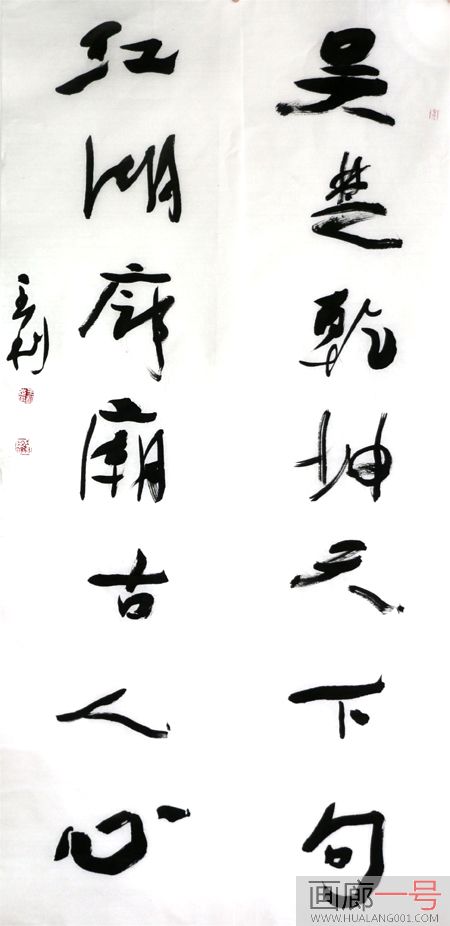 吴楚乾坤天下句
江湖廊庙古人心
画廊一号
WWW.HUALANG001.COM